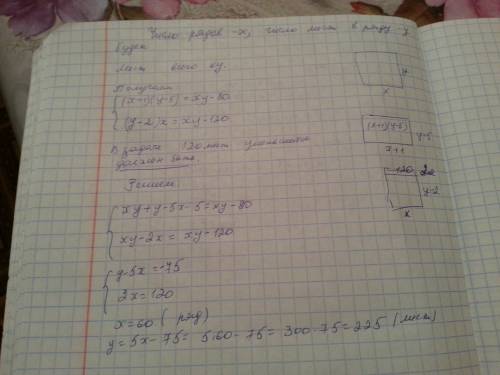 Число рядов -x, число мест в ряду y
будем
мест всего xy.
Получаем
(x+1)(y-5)=xy-80
(y-2)x = xy-120
В задаче 120 мест уменьшаться
должен быть
Решаем
xy+y-5x-5=xy-80
xy-2x = xy-120
y-5x=-75
2x=120
x=60 ( ряд)
y=5x-75= 5·60-75=300-75=225 (мест)
y
x
(x+1)(y-5)
y-5
x+1
-120
y-2
x